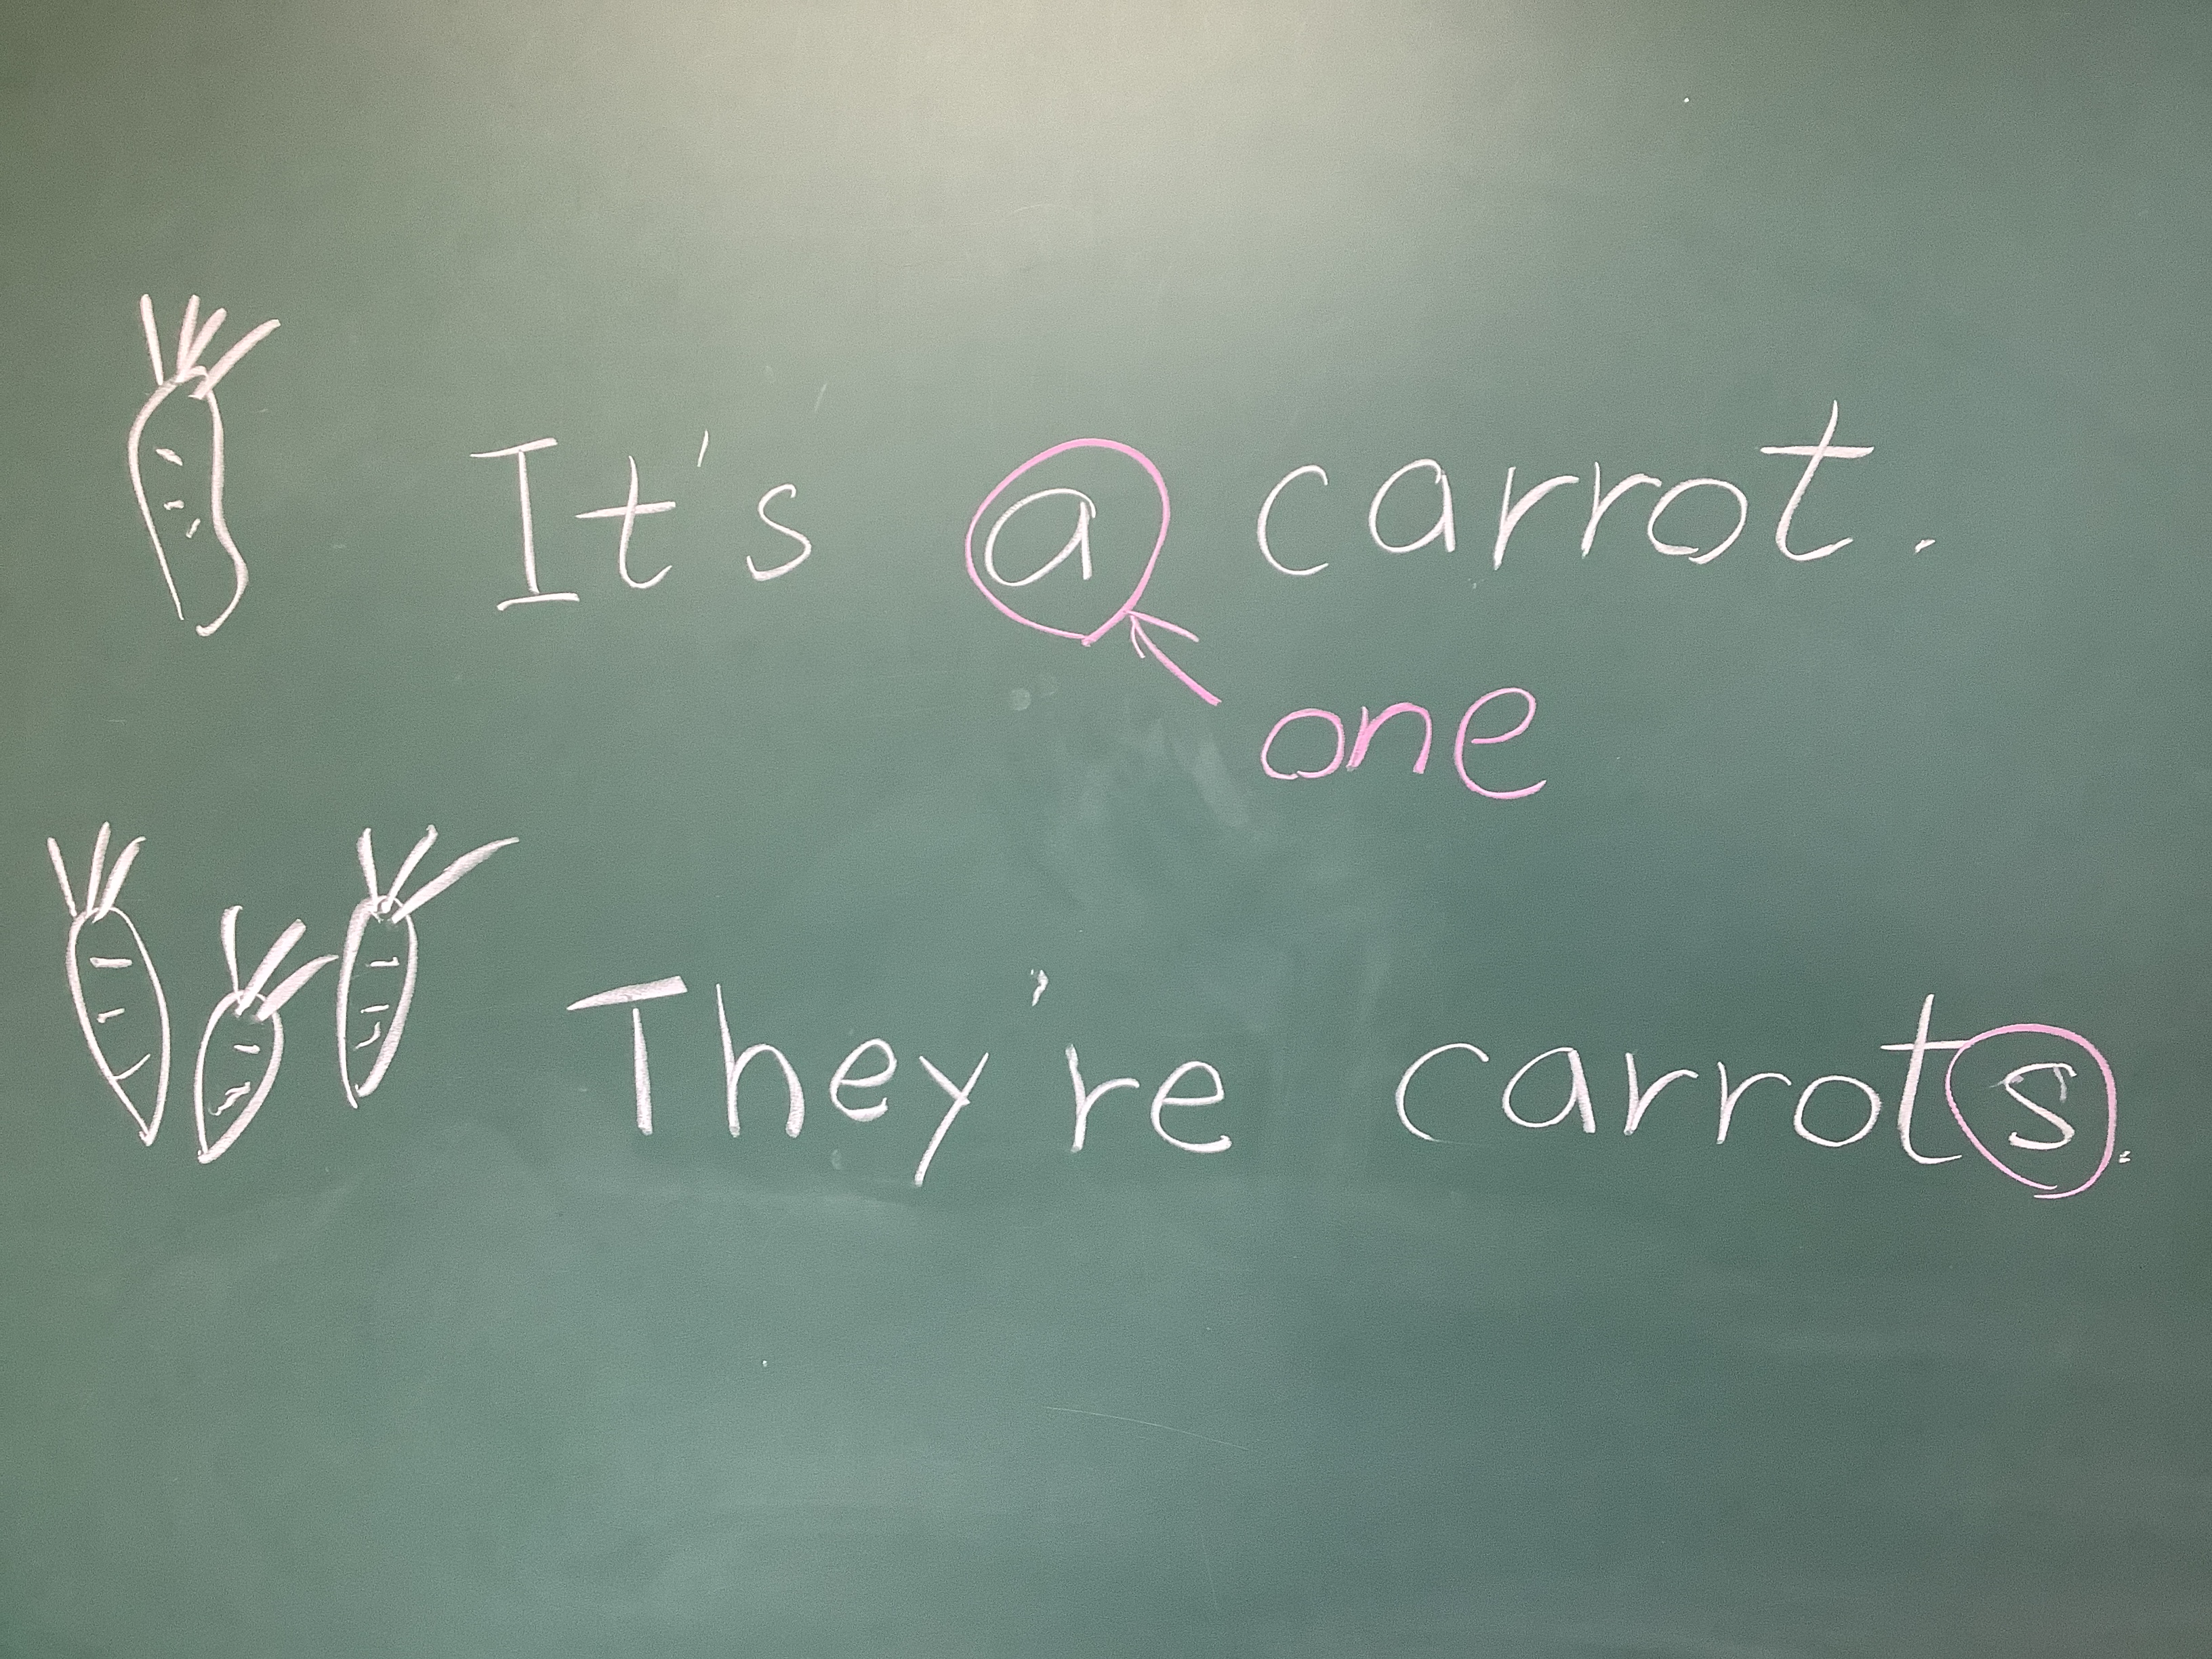 It's a carrot.
one
They're carrots.